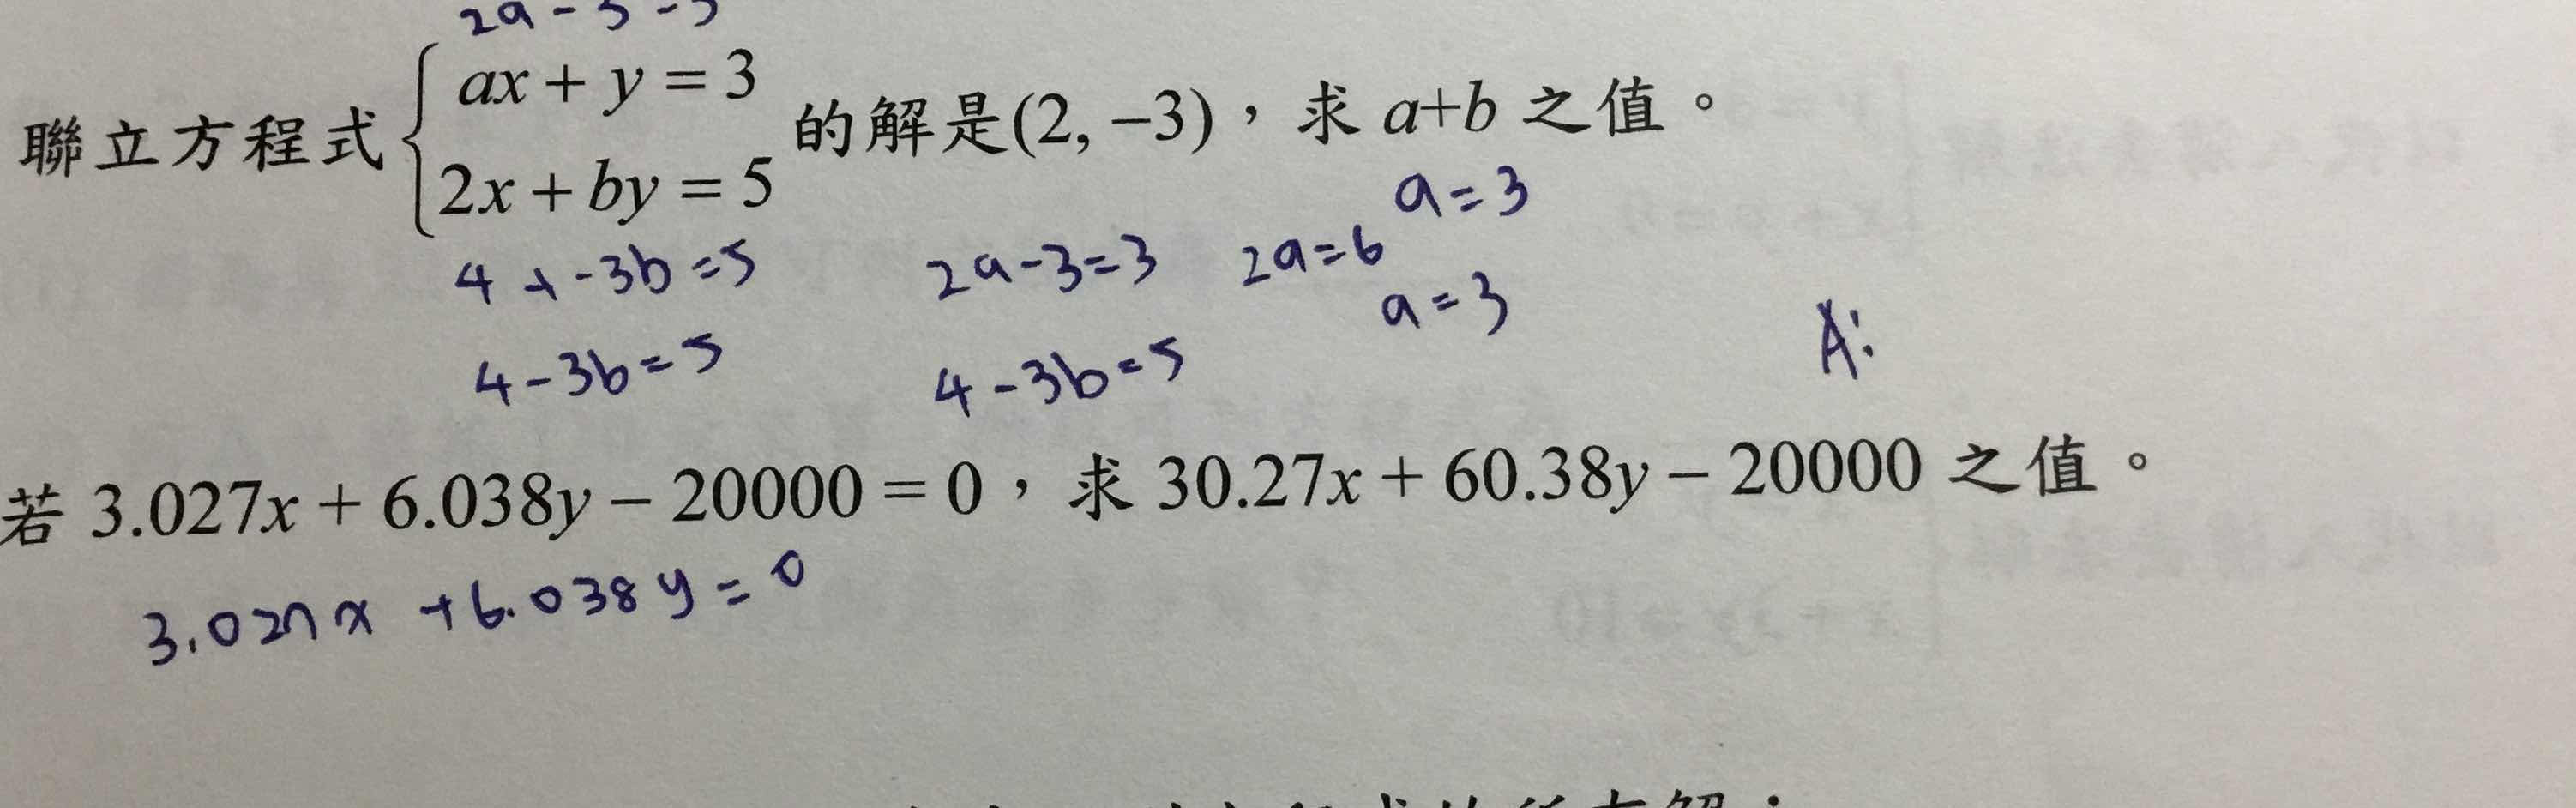 2a - 3 = 3
聯立方程式 { ax + y = 3 的解是(2, −3),求 a+b 之值。
2x + by = 5
a = 3
4 + -3b = 5 2a - 3 = 3 2a = 6
a = 3
4 - 3b = 5 4 - 3b = 5 A:
若 3.027x + 6.038y − 20000 = 0,求 30.27x + 60.38y − 20000 之值。
3.027x + 6.038y = 0